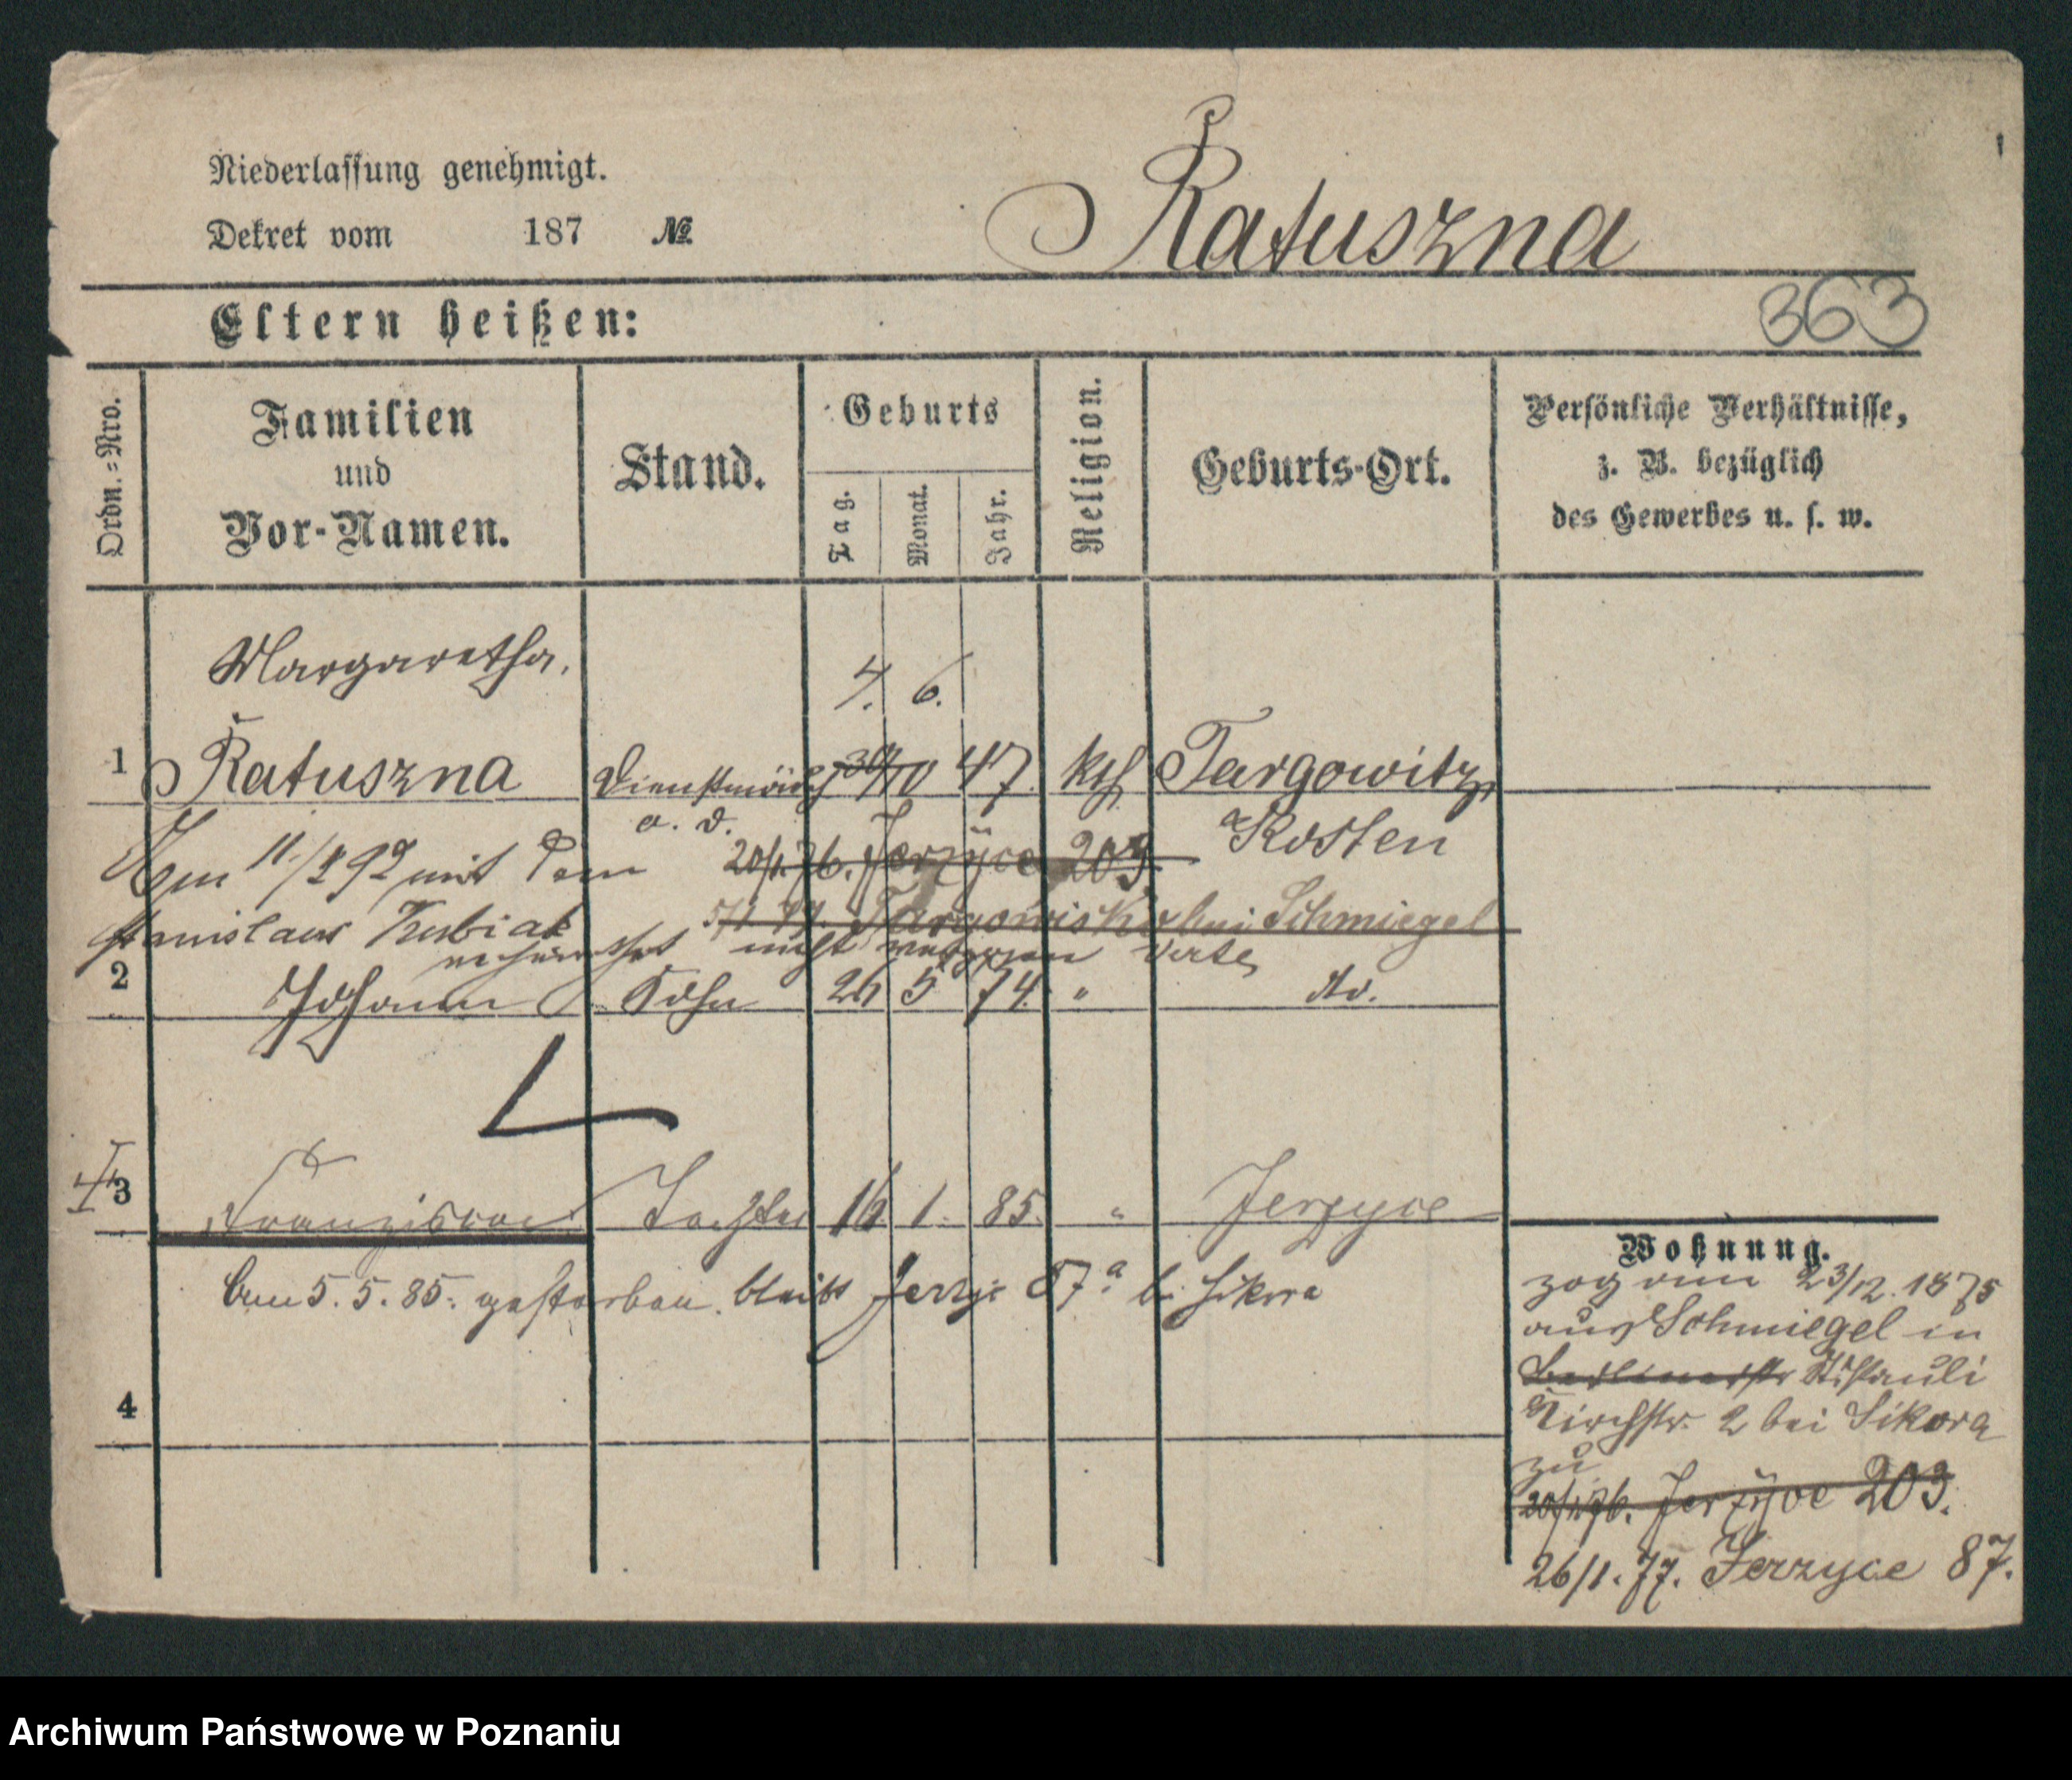 Niederlassung genehmigt.
Dekret vom 187 №
Ratuszna
Eltern heißen:
363
Ordn.=Nro.
Familien
und
Vor-Namen.
Stand.
Geburts
Tag.
Monat.
Jahr.
Religion.
Geburts-Ort.
Persönliche Verhältnisse,
z. B. bezüglich
des Gewerbes u. s. w.
Margaretha.
4. 6.
1 Ratuszna Dienstmädch 30/10 47. kth Targowitz,
a. D. Kosten
Am 11./ 92 mit dem 20/1.76. Jerzyce 203.
Stanislaus Kubiak 77. Targowisko bei Schmiegel
verheirathet nicht verte,
2 Johann Sohn 26 5 74. " do.
3 Franziska Tochter 16 1. 85. " Jerzyce
5. 5. 85. gestorben. bleibt Jerzyc 87a b. Sikora
4
Wohnung.
zog am 23/12. 1875
aus Schmiegel in
Berlinerstr St. Pauli
Kirchstr. 2 bei Sikora
zu
20/1.76. Jerzyce 203.
26/1.77. Jerzyce 87.
Archiwum Państwowe w Poznaniu